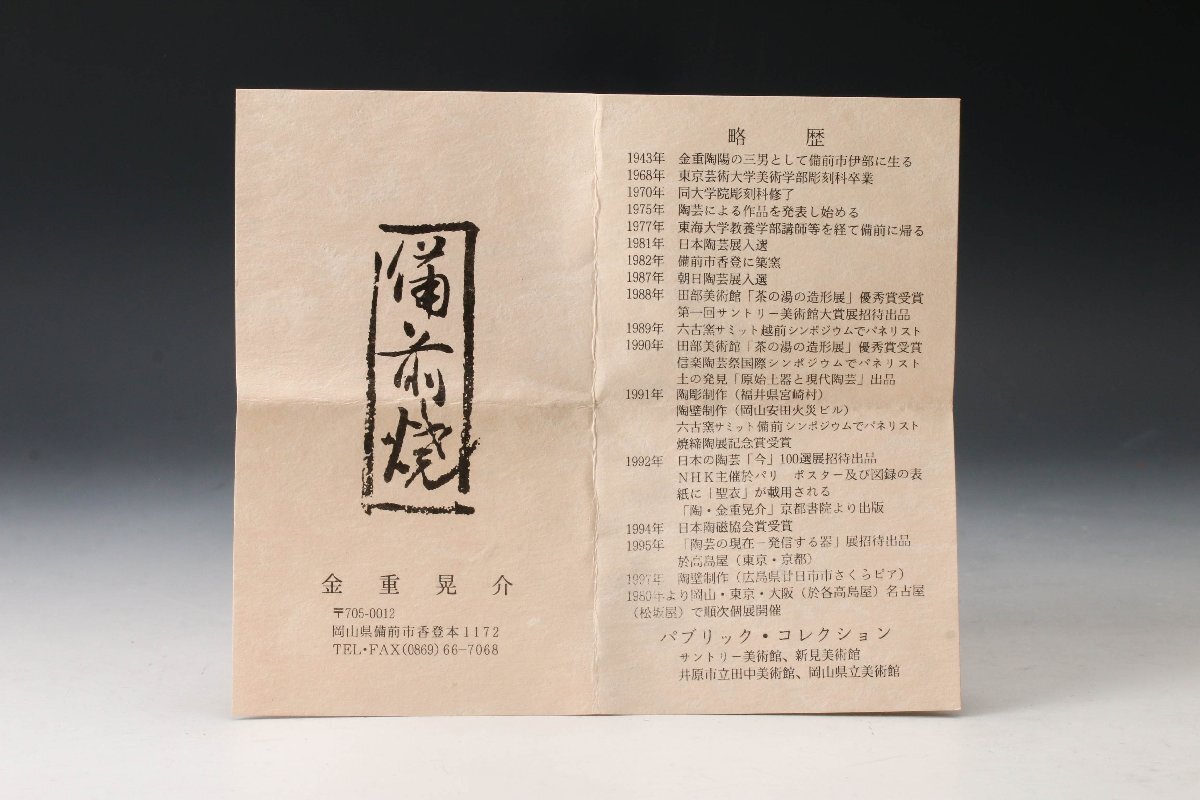 備前焼
金重晃介
〒705-0012
岡山県備前市香登本1172
TEL・FAX(0869)66-7068
略歴
1943年 金重陶陽の三男として備前市伊部に生る
1968年 東京芸術大学美術学部彫刻科卒業
1970年 同大学院彫刻科修了
1975年 陶芸による作品を発表し始める
1977年 東海大学教養学部講師等を経て備前に帰る
1981年 日本陶芸展入選
1982年 備前市香登に築窯
1987年 朝日陶芸展入選
1988年 田部美術館「茶の湯の造形展」優秀賞受賞
第一回サントリー美術館大賞展招待出品
1989年 六古窯サミット越前シンポジウムでパネリスト
1990年 田部美術館「茶の湯の造形展」優秀賞受賞
信楽陶芸祭国際シンポジウムでパネリスト
土の発見「原始土器と現代陶芸」出品
1991年 陶彫制作(福井県宮崎村)
陶壁制作(岡山安田火災ビル)
六古窯サミット備前シンポジウムでパネリスト
焼締陶展記念賞受賞
1992年 日本の陶芸「今」100選展招待出品
NHK主催於パリ ポスター及び図録の表
紙に「聖衣」が載用される
「陶・金重晃介」京都書院より出版
1994年 日本陶磁協会賞受賞
1995年 「陶芸の現在−発信する器」展招待出品
於高島屋(東京・京都)
1997年 陶壁制作(広島県廿日市市さくらピア)
1980年より岡山・東京・大阪(於各高島屋)名古屋
(松坂屋)で順次個展開催
パブリック・コレクション
サントリー美術館、新見美術館
井原市立田中美術館、岡山県立美術館